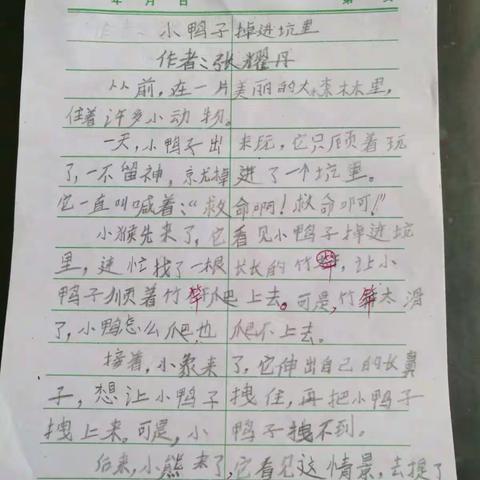 年 月 日 第 页
小鸭子掉进坑里
作者:张耀丹
从前,在一片美丽的大森林里,
住着许多小动物。
一天,小鸭子出来玩,它只顾着玩
了,一不留神,就掉进了一个坑里。
它一直叫喊着:“救命啊!救命啊!”
小猴先来了,它看见小鸭子掉进坑
里,连忙找了一根长长的竹竿,让小
鸭子顺着竹竿爬上去。可是,竹竿太滑
了,小鸭怎么爬也爬不上去。
接着,小象来了,它伸出自己的长鼻
子,想让小鸭子拽住,再把小鸭子
拽上来。可是,小鸭子拽不到。
后来,小熊来了,它看见这情景,去提了